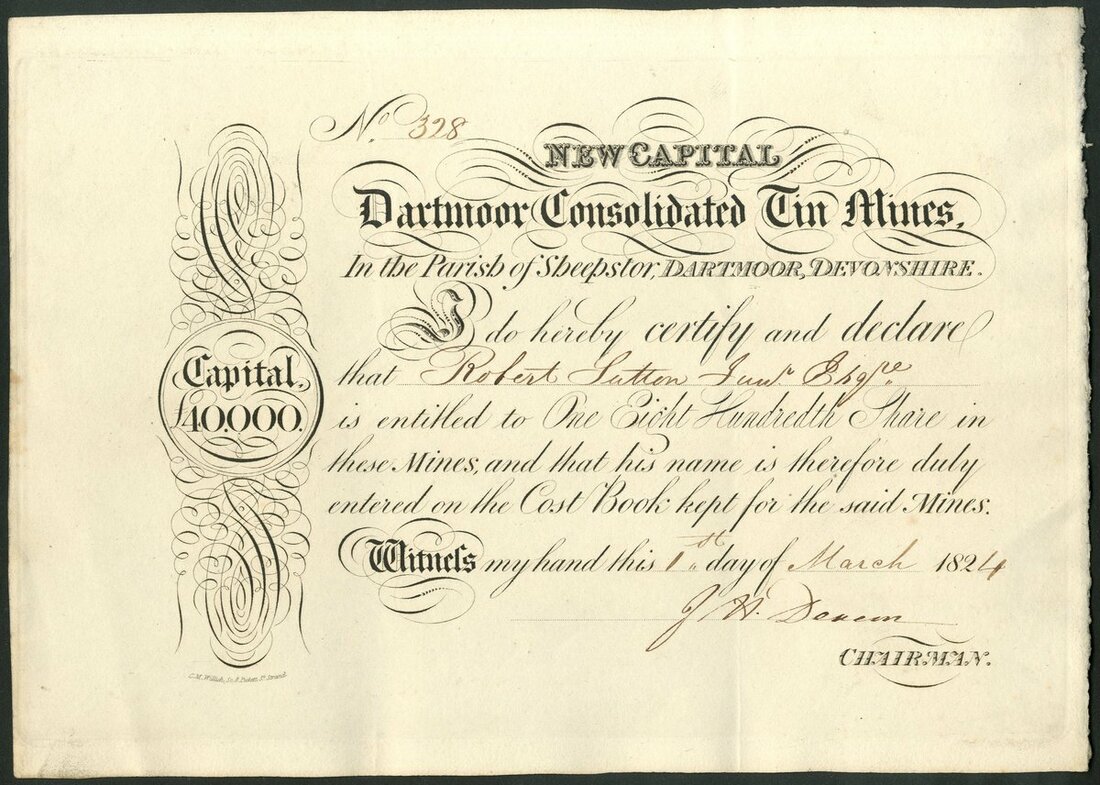 No. 328
NEW CAPITAL
Dartmoor Consolidated Tin Mines,
In the Parish of Sheepstor, DARTMOOR, DEVONSHIRE.
I do hereby certify and declare
that Robert Sutton Junr. Esqre.
is entitled to One Eight Hundredth Share in
these Mines, and that his name is therefore duly
entered on the Cost Book kept for the said Mines.
Witness my hand this 1st day of March 1824
J H
CHAIRMAN.
Capital.
£40,000.
C.M. Willich, Sc. 6, Pickett St. Strand